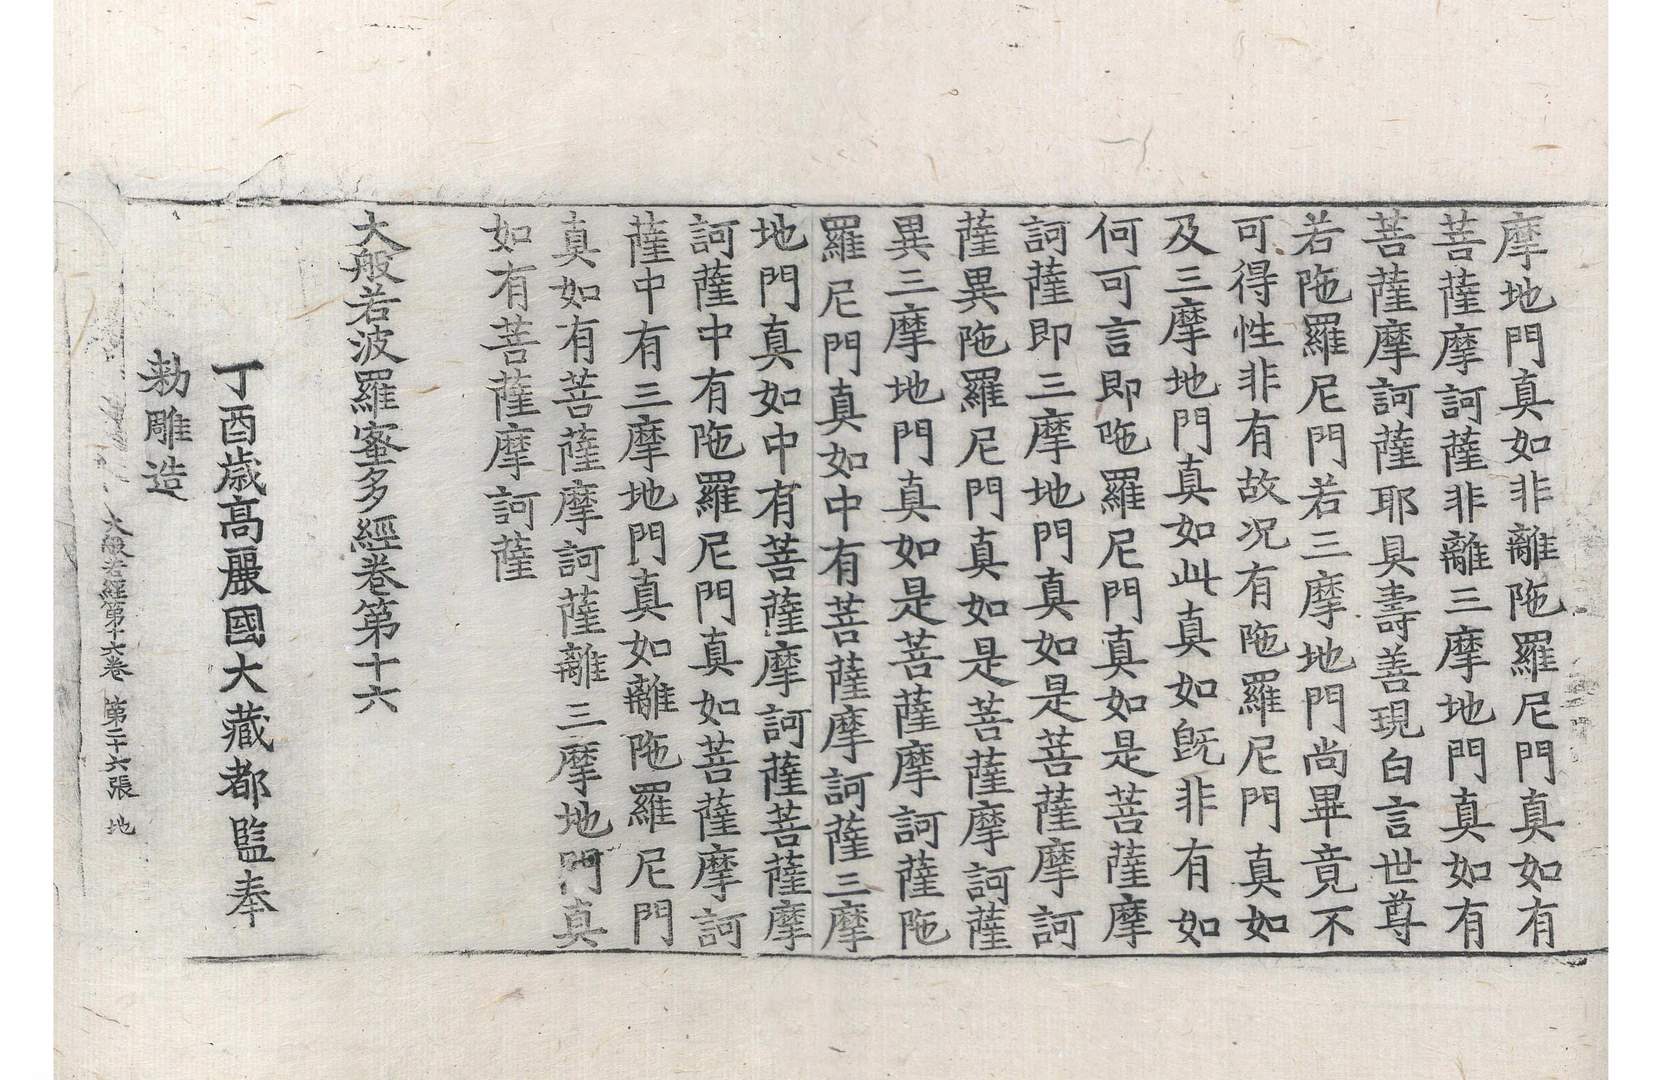 摩地門真如非離陁羅尼門真如有
菩薩摩訶薩非離三摩地門真如有
菩薩摩訶薩耶具壽善現白言世尊
若陁羅尼門若三摩地門尚畢竟不
可得性非有故况有陁羅尼門真如
及三摩地門真如此真如旣非有如
何可言即陁羅尼門真如是菩薩摩
訶薩即三摩地門真如是菩薩摩訶
薩異陁羅尼門真如是菩薩摩訶薩
異三摩地門真如是菩薩摩訶薩陁
羅尼門真如中有菩薩摩訶薩三摩
地門真如中有菩薩摩訶薩菩薩摩
訶薩中有陁羅尼門真如菩薩摩訶
薩中有三摩地門真如離陁羅尼門
真如有菩薩摩訶薩離三摩地門真
如有菩薩摩訶薩
大般若波羅蜜多經卷第十六
丁酉歲高麗國大藏都監奉
勑雕造
大般若經第十六卷 第二十六張 地